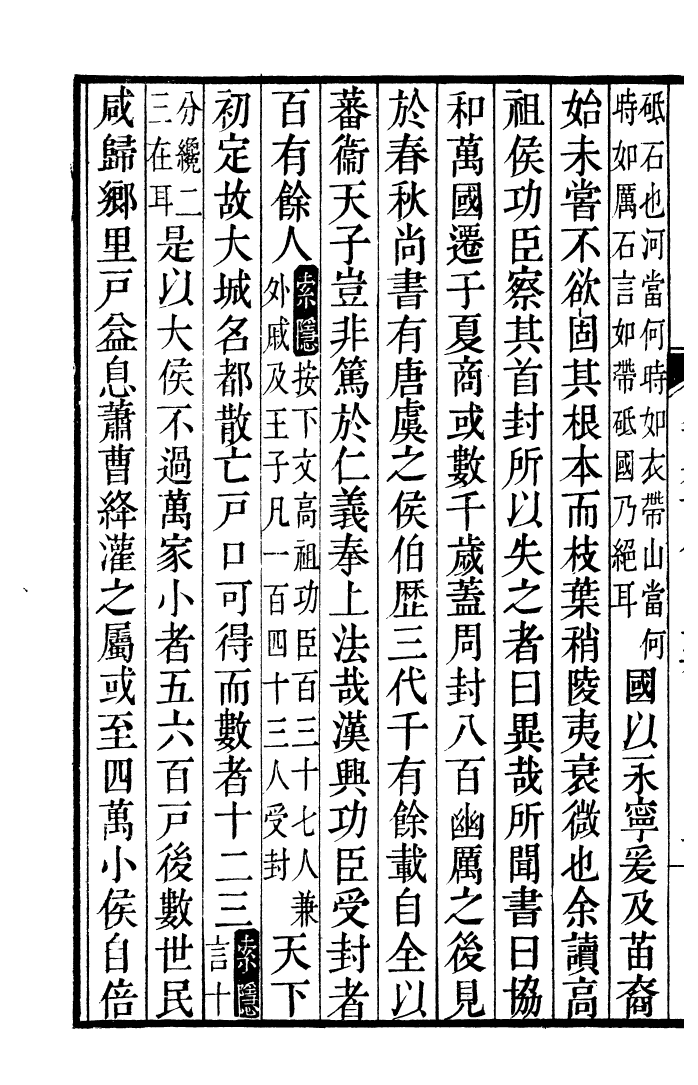 砥石也河當何時如衣帶山當何
時如厲石言如帶砥國乃絕耳
國以永寧爰及苗裔
始未嘗不欲固其根本而枝葉稍陵夷衰微也余讀高
祖侯功臣察其首封所以失之者曰異哉所聞書曰協
和萬國遷于夏商或數千歲蓋周封八百幽厲之後見
於春秋尚書有唐虞之侯伯歷三代千有餘載自全以
蕃衞天子豈非篤於仁義奉上法哉漢興功臣受封者
百有餘人
索隱
按下文高祖功臣百三十七人兼
外戚及王子凡一百四十三人受封
天下
初定故大城名都散亡戸口可得而數者十二三
索隱
言十
分纔二
三在耳
是以大侯不過萬家小者五六百戸後數世民
咸歸鄉里戸益息蕭曹絳灌之屬或至四萬小侯自倍